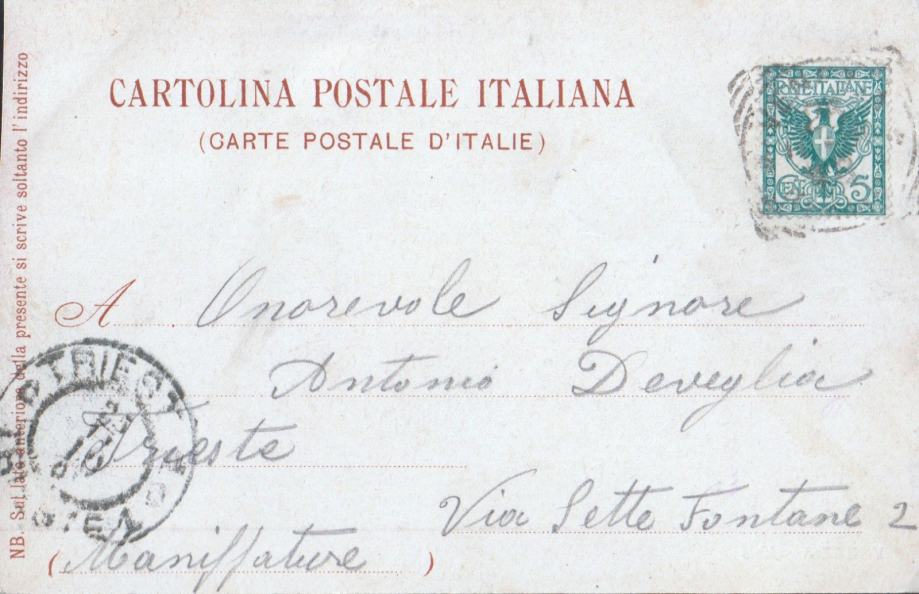 CARTOLINA POSTALE ITALIANA
(CARTE POSTALE D'ITALIE)
POSTE ITALIANE
CENT. 5
NB. Sul lato anteriore della presente si scrive soltanto l'indirizzo
A Onorevole Signore
Antonio Deveglia
Trieste
Via Sette Fontane 2
(Maniffature)
TRIEST